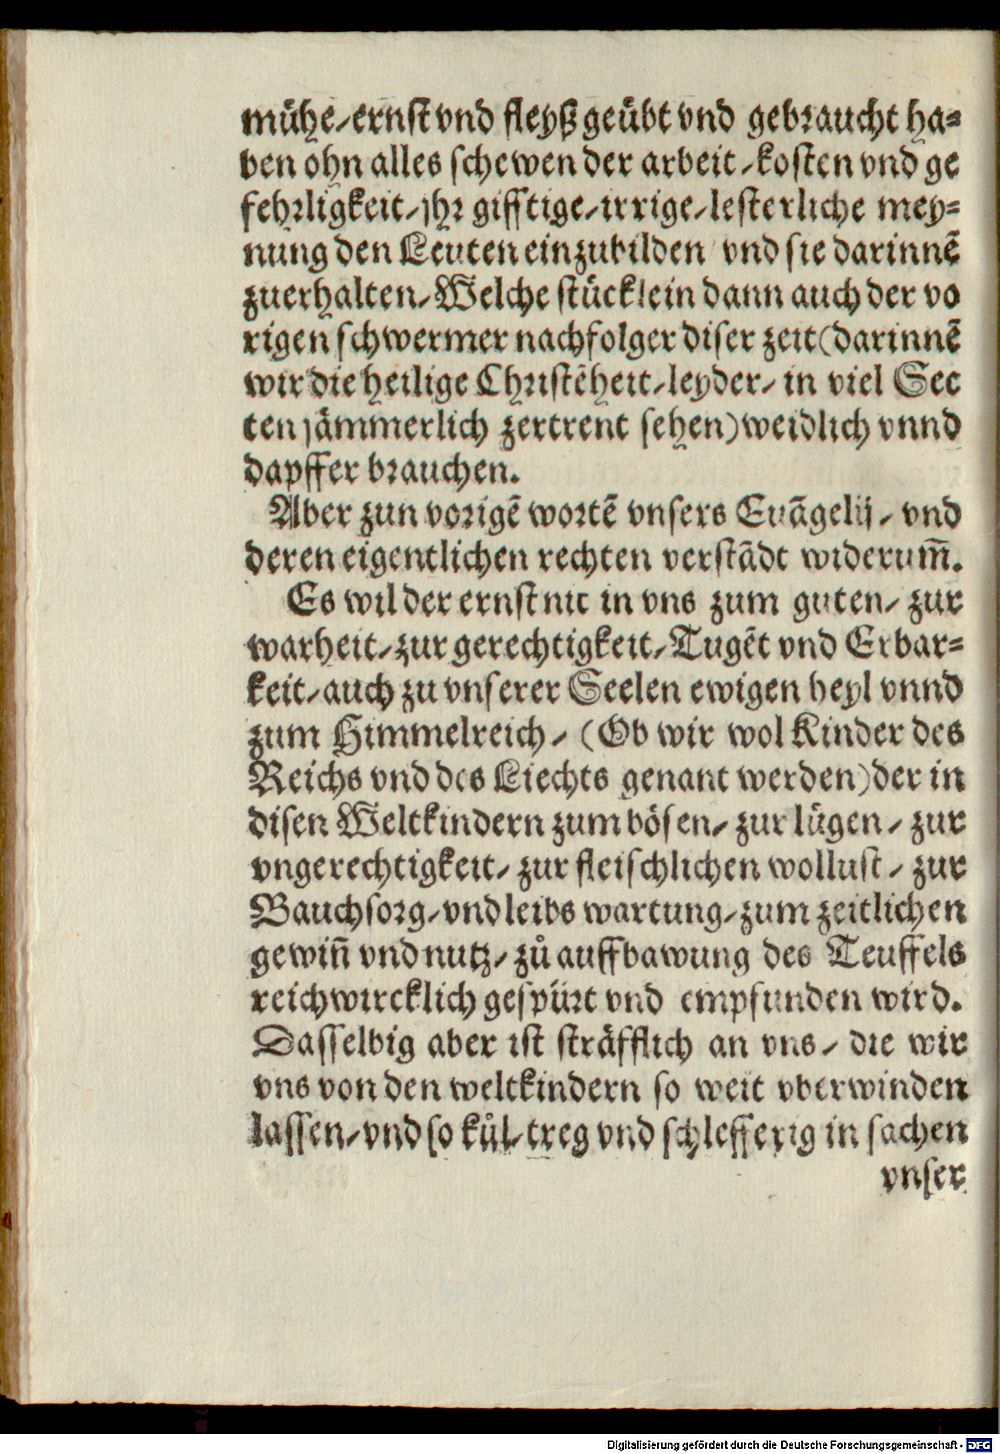 mühe/ernst vnd fleyß geübt vnd gebraucht ha=
ben ohn alles schewen der arbeit/kosten vnd ge
fehrligkeit/jhr gifftige/irrige/lesterliche mey=
nung den Leuten einzubilden vnd sie darinnē
zuerhalten/Welche stücklein dann auch der vo
rigen schwermer nachfolger diser zeit(darinnē
wir die heilige Christēheit/leyder/in viel Sec
ten jämmerlich zertrent sehen)weidlich vnnd
dapffer brauchen.
Aber zun vorigē wortē vnsers Euāgelij/vnd
deren eigentlichen rechten verstādt widerum̄.
Es wil der ernst nit in vns zum guten/zur
warheit/zur gerechtigkeit/Tugēt vnd Erbar=
keit/auch zu vnserer Seelen ewigen heyl vnnd
zum Himmelreich/(Ob wir wol Kinder des
Reichs vnd des Liechts genant werden)der in
disen Weltkindern zum bösen/zur lügen/zur
vngerechtigkeit/zur fleischlichen wollust/zur
Bauchsorg/vnd leibs wartung/zum zeitlichen
gewiñ vnd nutz/zů auffbawung des Teuffels
reich wircklich gespürt vnd empfunden wird.
Dasselbig aber ist sträfflich an vns/die wir
vns von den weltkindern so weit vberwinden
lassen/vnd so kül/treg vnd schlefferig in sachen
vnser
Digitalisierung gefördert durch die Deutsche Forschungsgemeinschaft - DFG